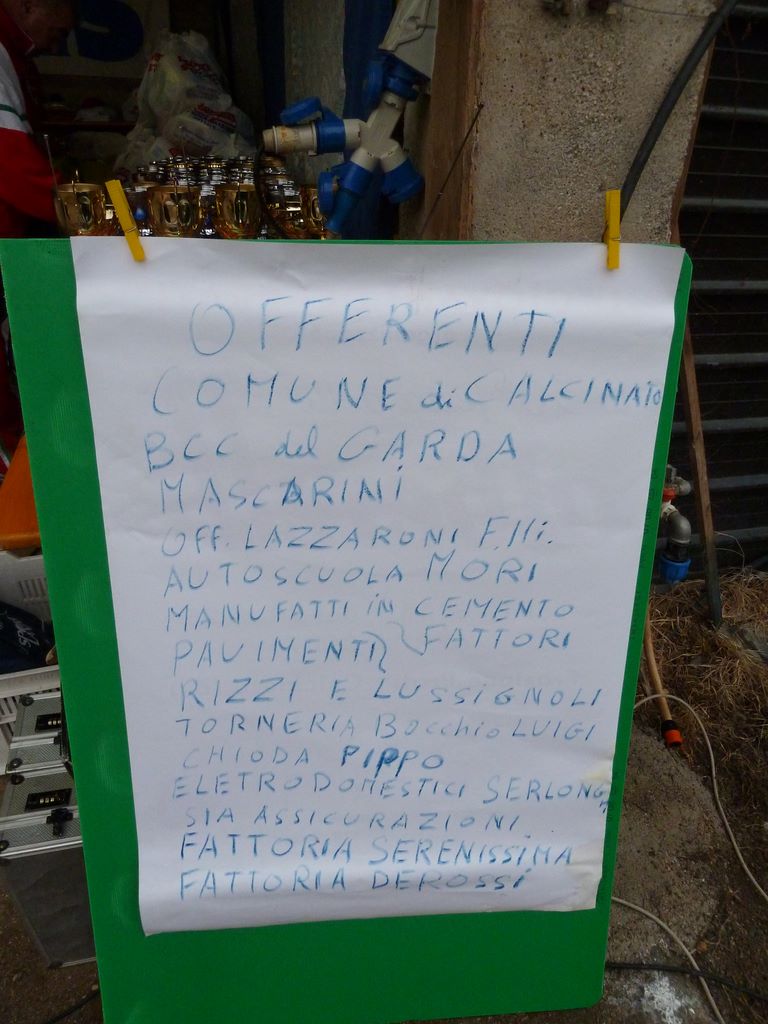 OFFERENTI
COMUNE di CALCINATO
BCC del GARDA
MASCARINI
OFF. LAZZARONI F.lli.
AUTOSCUOLA MORI
MANUFATTI in CEMENTO
PAVIMENTI FATTORI
RIZZI E LUSSIGNOLI
TORNERIA Bocchio LUIGI
CHIODA PIPPO
ELETRODOMESTICI SERLONGA
SIA ASSICURAZIONI
FATTORIA SERENISSIMA
FATTORIA DEROSSI